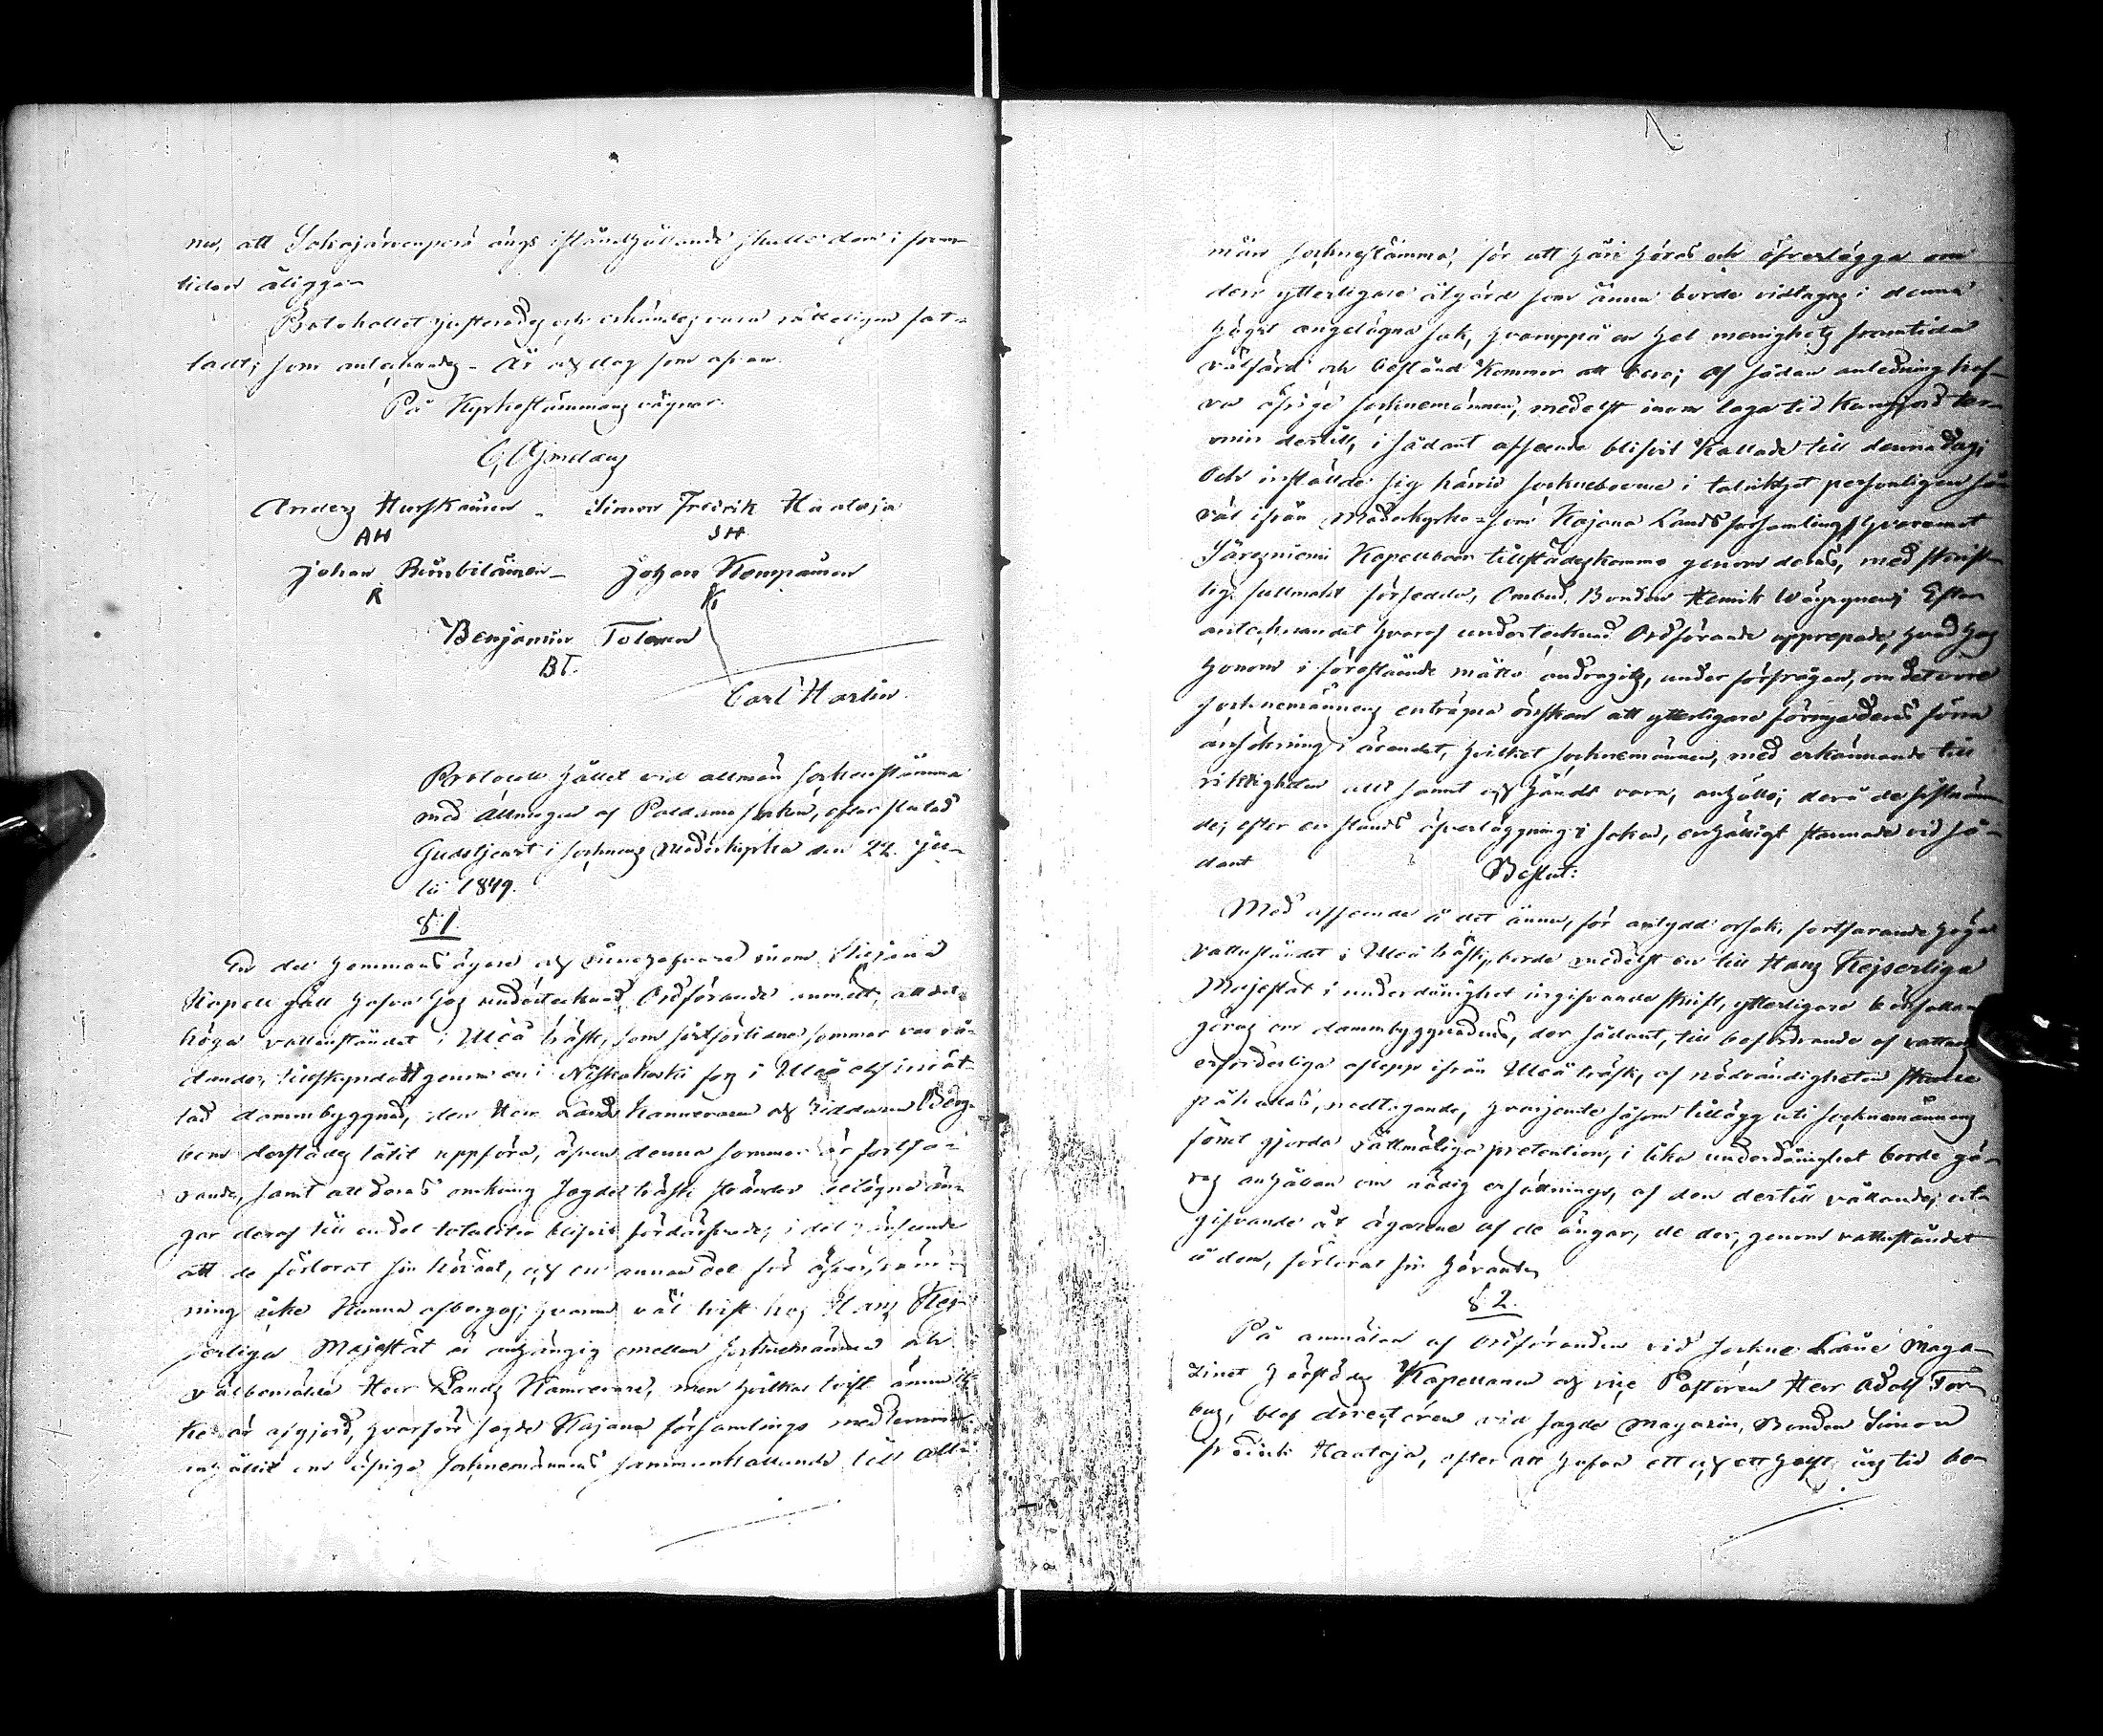 nu, att Jokajärvenperä ängs iståndhållande skulle dem i fram-
tiden åligga.
Protokollet justerades och erkändes vara rätteligen fat-
tadt; som antecknades. År och dag som ofvan.
På Kyrkostämmans vägnar.
Anders Hurskainen - Simon Fredrik Haataja
AH SH
Johan Rimbiläinen - Johan Kompainen
R K
Benjamin Tolonen
BT.
Carl Harlin.
Protocoll hållet vid allmän Sockenstämma
med Allmogen af Paldamo socken, efter slutad
Gudstjenst i socknens Moderkyrka den 22. Ju-
lii 1849.
§ 1.
En del hemmansägare och innehafvare inom
Kapell gäll hafva hos undertecknad Ordförande anmält, att det
höga vattenståndet i Uleå träsk, som sistförlidne sommar var rå-
dande, tillskyndadt genom en i Niskakoski fors i Uleå elf inrät-
tad dammbyggnad, den Herr Lands Kamreraren och Riddaren Berg-
bom derstädes låtit uppföra, äfven denna sommar är fortfa-
rande, samt att deras omkring sagde träsk stränder belägne än-
gar deraf till en del totaliter blifvit förderfvade, i det anseende
att de förlorat sin höväxt, och en annan del för öfversväm-
ning icke kunna afbergas; hvarom väl tvist hos Hans Kej-
serliga Majestät är anhängig emellan Socknemännen och
välbemälde Herr Lands Kamrerare, men hvilken tvist ännu ic-
ke är afgjord, hvarföre sagde Kajana församlings medlemmar
anhållit om öfrige Socknemännens sammankallande till all-
män sockenstämma, för att häri höras och öfverlägga om
den ytterligare åtgärd som ännu borde vidtagas i denna
högst angelägna sak, hvaruppå en hel menighets framtida
välfärd och bestånd kommer att bero; af sådan anledning haf-
va öfrige socknemännen, medelst inom laga tid kungjord ter-
min dertill, i sådant afseende blifvit kallade till denna dag;
Och inställde sig härvid sockneboerne i talrikhet personligen så
väl ifrån Moderkyrko- som Kajana Landsförsamling, hvaremot
Säresniemi Kapellboer tillstädeskommo genom deras, med skrift-
lig fullmakt försedde, Ombud, Bonden Henrik Wäyrynen; Efter
antecknandet hvaraf undertecknad Ordförande upprepade, hvad hos
honom i förestående måtto andragits, under förfrågan, om det vore
socknemännens enträgna önskan att ytterligare förnya deras förra
ansökning i ärendet, hvilket socknemännen, med erkännande till
riktigheten allt sannt och händt vara, anhöllo; derå de sistnämn-
de, efter en stunds öfverläggning i saken, enhälligt stannade vid så-
dant
Beslut:
Med afseende å det ännu, för antydd orsak, fortfarande höga
vattuståndet i Uleå träsk, borde medelst en till Hans Kejserliga
Majestät i underdånighet ingifvande skrift, ytterligare bönfallan
göras om dammbyggnadens, der sådant, till befordrande af vattnets
erforderliga aflopp ifrån Uleå träsk, af nödvändigheten skulle
påkallas, nedtagande, hvarjemte såsom tillägg uti socknemännens
förut gjorda rättmätiga pretention, i lika underdånighet borde gö-
ras anhållan om nödig ersättnings, af den dertill vållande, ut-
gifvande åt ägarene af de ängar, de der, genom vattuståndet
å dem, förlorat sin hövext.
§ 2.
På anmälan af Ordföranden vid Sockne Låne Maga-
zinet härstädes Kapellanen och vice Pastoren Herr Adolf For-
bus, blef directeuren vid sagde Magazin, Bonden Simon
Fredrik Haataja, efter att hafva ett och ett halft års tid be-